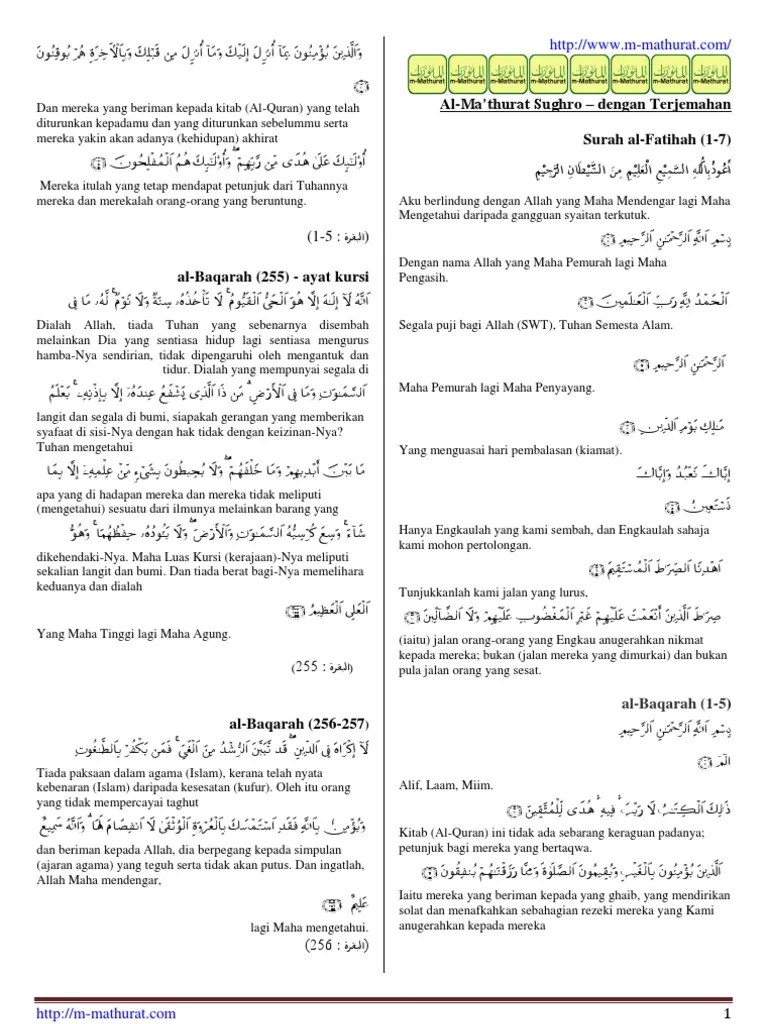 http://www.m-mathurat.com/
m-Mathurat m-Mathurat m-Mathurat m-Mathurat m-Mathurat m-Mathurat m-Mathurat m-Mathurat
Al-Ma’thurat Sughro – dengan Terjemahan
Surah al-Fatihah (1-7)
أَعُوذُ بِاللَّهِ السَّمِيْعِ الْعَلِيْمِ مِنَ الشَّيْطَانِ الرَّجِيْمِ
Aku berlindung dengan Allah yang Maha Mendengar lagi Maha
Mengetahui daripada gangguan syaitan terkutuk.
بِسْمِ ٱللَّهِ ٱلرَّحْمَـٰنِ ٱلرَّحِيمِ ﴿١﴾
Dengan nama Allah yang Maha Pemurah lagi Maha
Pengasih.
ٱلْحَمْدُ لِلَّهِ رَبِّ ٱلْعَـٰلَمِينَ ﴿٢﴾
Segala puji bagi Allah (SWT), Tuhan Semesta Alam.
ٱلرَّحْمَـٰنِ ٱلرَّحِيمِ ﴿٣﴾
Maha Pemurah lagi Maha Penyayang.
مَـٰلِكِ يَوْمِ ٱلدِّينِ ﴿٤﴾
Yang menguasai hari pembalasan (kiamat).
إِيَّاكَ نَعْبُدُ وَإِيَّاكَ
نَسْتَعِينُ ﴿٥﴾
Hanya Engkaulah yang kami sembah, dan Engkaulah sahaja
kami mohon pertolongan.
ٱهْدِنَا ٱلصِّرَٰطَ ٱلْمُسْتَقِيمَ ﴿٦﴾
Tunjukkanlah kami jalan yang lurus,
صِرَٰطَ ٱلَّذِينَ أَنْعَمْتَ عَلَيْهِمْ غَيْرِ ٱلْمَغْضُوبِ عَلَيْهِمْ وَلَا ٱلضَّآلِّينَ ﴿٧﴾
(iaitu) jalan orang-orang yang Engkau anugerahkan nikmat
kepada mereka; bukan (jalan mereka yang dimurkai) dan bukan
pula jalan orang yang sesat.
al-Baqarah (1-5)
بِسْمِ ٱللَّهِ ٱلرَّحْمَـٰنِ ٱلرَّحِيمِ
الٓمٓ ﴿١﴾
Alif, Laam, Miim.
ذَٰلِكَ ٱلْكِتَـٰبُ لَا رَيْبَ ۛ فِيهِ ۛ هُدًى لِّلْمُتَّقِينَ ﴿٢﴾
Kitab (Al-Quran) ini tidak ada sebarang keraguan padanya;
petunjuk bagi mereka yang bertaqwa.
ٱلَّذِينَ يُؤْمِنُونَ بِٱلْغَيْبِ وَيُقِيمُونَ ٱلصَّلَوٰةَ وَمِمَّا رَزَقْنَـٰهُمْ يُنفِقُونَ ﴿٣﴾
Iaitu mereka yang beriman kepada yang ghaib, yang mendirikan
solat dan menafkahkan sebahagian rezeki mereka yang Kami
anugerahkan kepada mereka
وَٱلَّذِينَ يُؤْمِنُونَ بِمَآ أُنزِلَ إِلَيْكَ وَمَآ أُنزِلَ مِن قَبْلِكَ وَبِٱلْأَخِرَةِ هُمْ يُوقِنُونَ
﴿٤﴾
Dan mereka yang beriman kepada kitab (Al-Quran) yang telah
diturunkan kepadamu dan yang diturunkan sebelummu serta
mereka yakin akan adanya (kehidupan) akhirat
أُو۟لَـٰٓئِكَ عَلَىٰ هُدًى مِّن رَّبِّهِمْ ۖ وَأُو۟لَـٰٓئِكَ هُمُ ٱلْمُفْلِحُونَ ﴿٥﴾
Mereka itulah yang tetap mendapat petunjuk dari Tuhannya
mereka dan merekalah orang-orang yang beruntung.
(البقرة : 1-5)
al-Baqarah (255) - ayat kursi
ٱللَّهُ لَآ إِلَـٰهَ إِلَّا هُوَ ٱلْحَىُّ ٱلْقَيُّومُ ۚ لَا تَأْخُذُهُۥ سِنَةٌ وَلَا نَوْمٌ ۚ لَّهُۥ مَا فِى
Dialah Allah, tiada Tuhan yang sebenarnya disembah
melainkan Dia yang sentiasa hidup lagi sentiasa mengurus
hamba-Nya sendirian, tidak dipengaruhi oleh mengantuk dan
tidur. Dialah yang mempunyai segala di
ٱلسَّمَـٰوَٰتِ وَمَا فِى ٱلْأَرْضِ ۗ مَن ذَا ٱلَّذِى يَشْفَعُ عِندَهُۥٓ إِلَّا بِإِذْنِهِۦ ۚ يَعْلَمُ
langit dan segala di bumi, siapakah gerangan yang memberikan
syafaat di sisi-Nya dengan hak tidak dengan keizinan-Nya?
Tuhan mengetahui
مَا بَيْنَ أَيْدِيهِمْ وَمَا خَلْفَهُمْ ۖ وَلَا يُحِيطُونَ بِشَىْءٍ مِّنْ عِلْمِهِۦٓ إِلَّا بِمَا
apa yang di hadapan mereka dan mereka tidak meliputi
(mengetahui) sesuatu dari ilmunya melainkan barang yang
شَآءَ ۚ وَسِعَ كُرْسِيُّهُ ٱلسَّمَـٰوَٰتِ وَٱلْأَرْضَ ۖ وَلَا يَـُٔودُهُۥ حِفْظُهُمَا ۚ وَهُوَ
dikehendaki-Nya. Maha Luas Kursi (kerajaan)-Nya meliputi
sekalian langit dan bumi. Dan tiada berat bagi-Nya memelihara
keduanya dan dialah
ٱلْعَلِىُّ ٱلْعَظِيمُ ﴿٢٥٥﴾
Yang Maha Tinggi lagi Maha Agung.
(البقرة : 255)
al-Baqarah (256-257)
لَآ إِكْرَاهَ فِى ٱلدِّينِ ۖ قَد تَّبَيَّنَ ٱلرُّشْدُ مِنَ ٱلْغَىِّ ۚ فَمَن يَكْفُرْ بِٱلطَّـٰغُوتِ
Tiada paksaan dalam agama (Islam), kerana telah nyata
kebenaran (Islam) daripada kesesatan (kufur). Oleh itu orang
yang tidak mempercayai taghut
وَيُؤْمِنۢ بِٱللَّهِ فَقَدِ ٱسْتَمْسَكَ بِٱلْعُرْوَةِ ٱلْوُثْقَىٰ لَا ٱنفِصَامَ لَهَا ۗ وَٱللَّهُ سَمِيعٌ
dan beriman kepada Allah, dia berpegang kepada simpulan
(ajaran agama) yang teguh serta tidak akan putus. Dan ingatlah,
Allah Maha mendengar,
عَلِيمٌ ﴿٢٥٦﴾
lagi Maha mengetahui.
(البقرة : 256)
http://m-mathurat.com
1